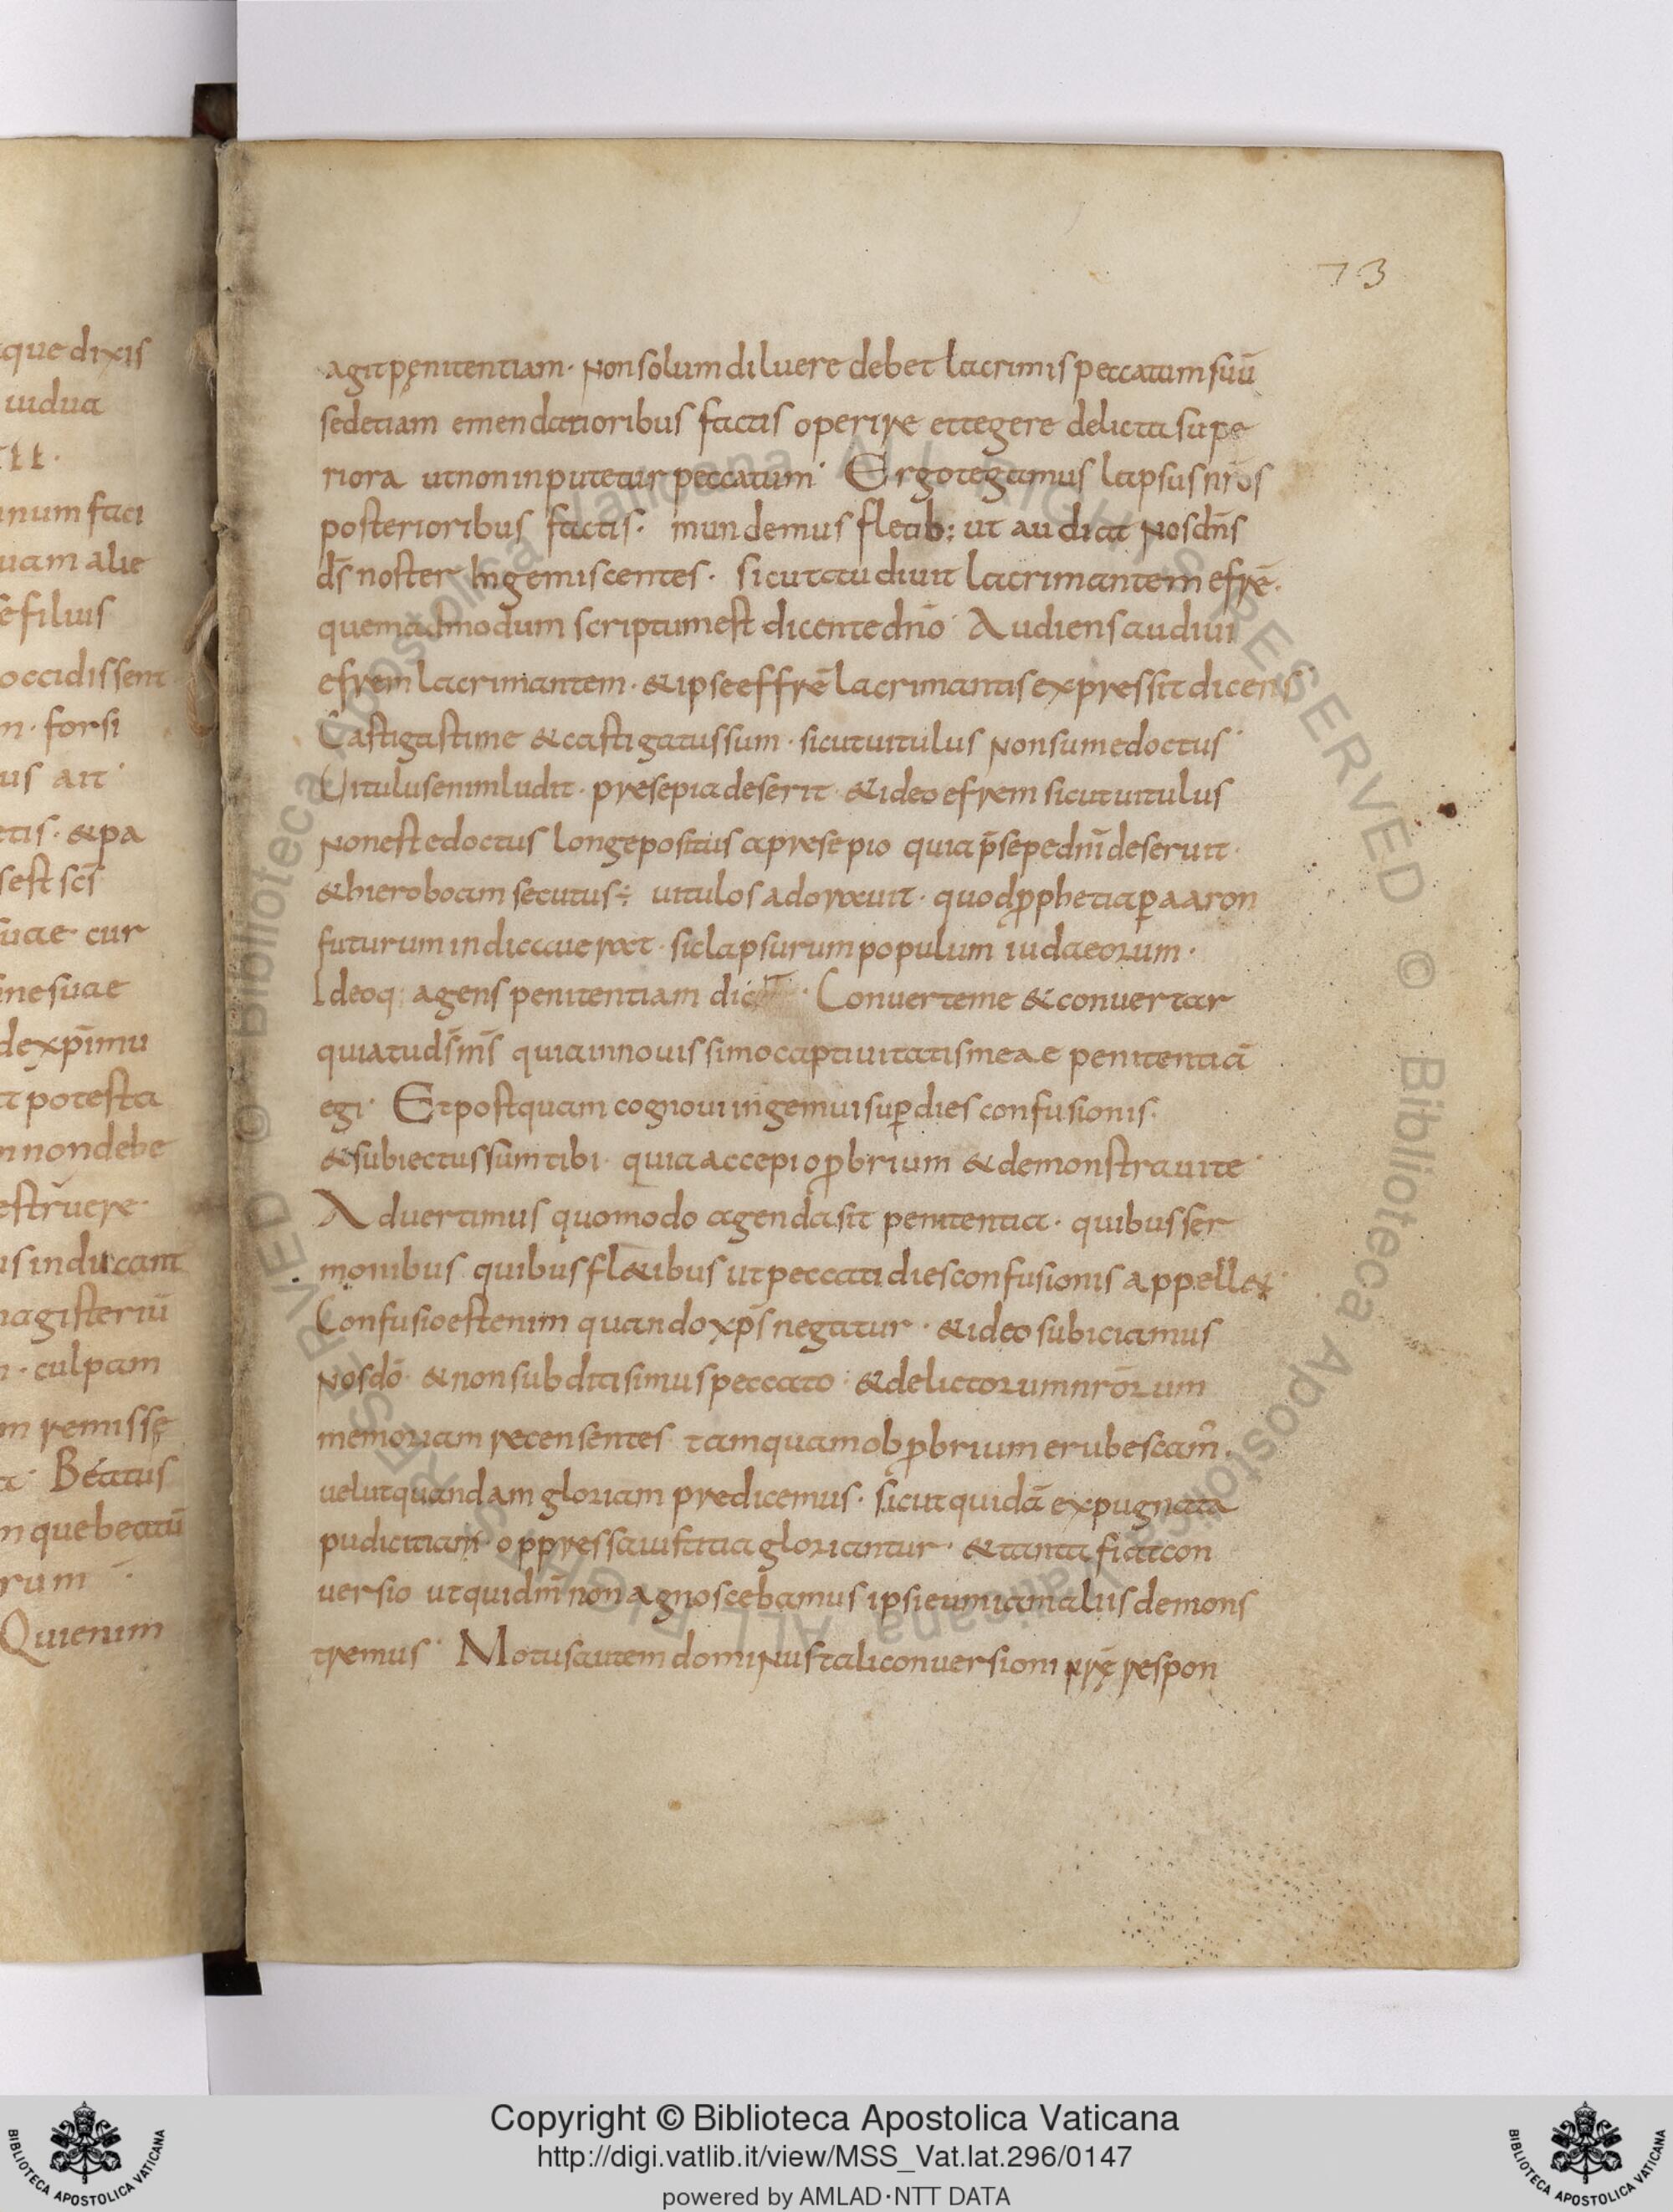 que dixis
uidua
num faci
uam alie
se filius
occidissent
n · forsi
us ait
etis · & pa
s est scs̄
suae cur
ine suae
de xp̄i mu
potesta
n non debe
estruere
is inducant
magisteriū
n · culpam
m remisse
Beatus
n que beatū
rum
Qui enim
73
agit pęnitentiam · Non solum diluere debet lacrimis peccatum suū
sed etiam emendatioribus factis operire et tegere delicta supe
riora ut non inputetur peccatum · Ergo tegamus lapsus nr̄os
posterioribus factis · mundemus fletib; ut audiat nos dn̄s
ds̄ noster Ingemiscentes · sicut audiuit lacrimantem efrē ·
quemadmodum scriptum est dicente dn̄o · Audiens audiui
efrem lacrimantem · & ipse effrē lacrimantis expressit dicens
Castigasti me & castigatus sum · sicut uitulus non sum edoctus ·
Uitulus enim ludit · presepia deserit · & ideo efrem sicut uitulus
non est edoctus longe positus a presepio quia p̄sepe dn̄i deseruit ·
& hieroboam secutus ÷ uitulos adorauit · quod ꝓphetia ꝑ aaron
futurum indicauerat · sic lapsurum populum iudaeorum ·
Ideoq; agens penitentiam dicit · Conuerte me & conuertar
quia tu ds̄ ms̄ quia in nouissimo captiuitatis meae penitentiā
egi · Et postquam cognoui ingemui suꝑ dies confusionis ·
& subiectus sum tibi · quia accepi opꝓbrium & demonstraui te ·
Aduertimus quomodo agenda sit penitentia · quibus ser
monibus quibus fl&ibus ut peccati dies confusionis appell&
Confusio est enim quando xp̄s negatur · & ideo subiciamus
nos dō · & non subditi simus peccato · & delictorum nr̄orum
memoriam recensentes tamquam obꝓbrium erubescam̄ ·
uelut quandam gloriam predicemus · sicut quidā expugnata
pudicitiam oppressa uisatia gloriantur · & tanta fiat con
uersio ut qui dm̄ non agnoscebamus ipsi eum iam aliis demons
tremus · Motus autem dominus tali conuersioni nrę respon
Copyright © Biblioteca Apostolica Vaticana
http://digi.vatlib.it/view/MSS_Vat.lat.296/0147
powered by AMLAD·NTT DATA
BIBLIOTECA APOSTOLICA VATICANA
BIBLIOTECA APOSTOLICA VATICANA